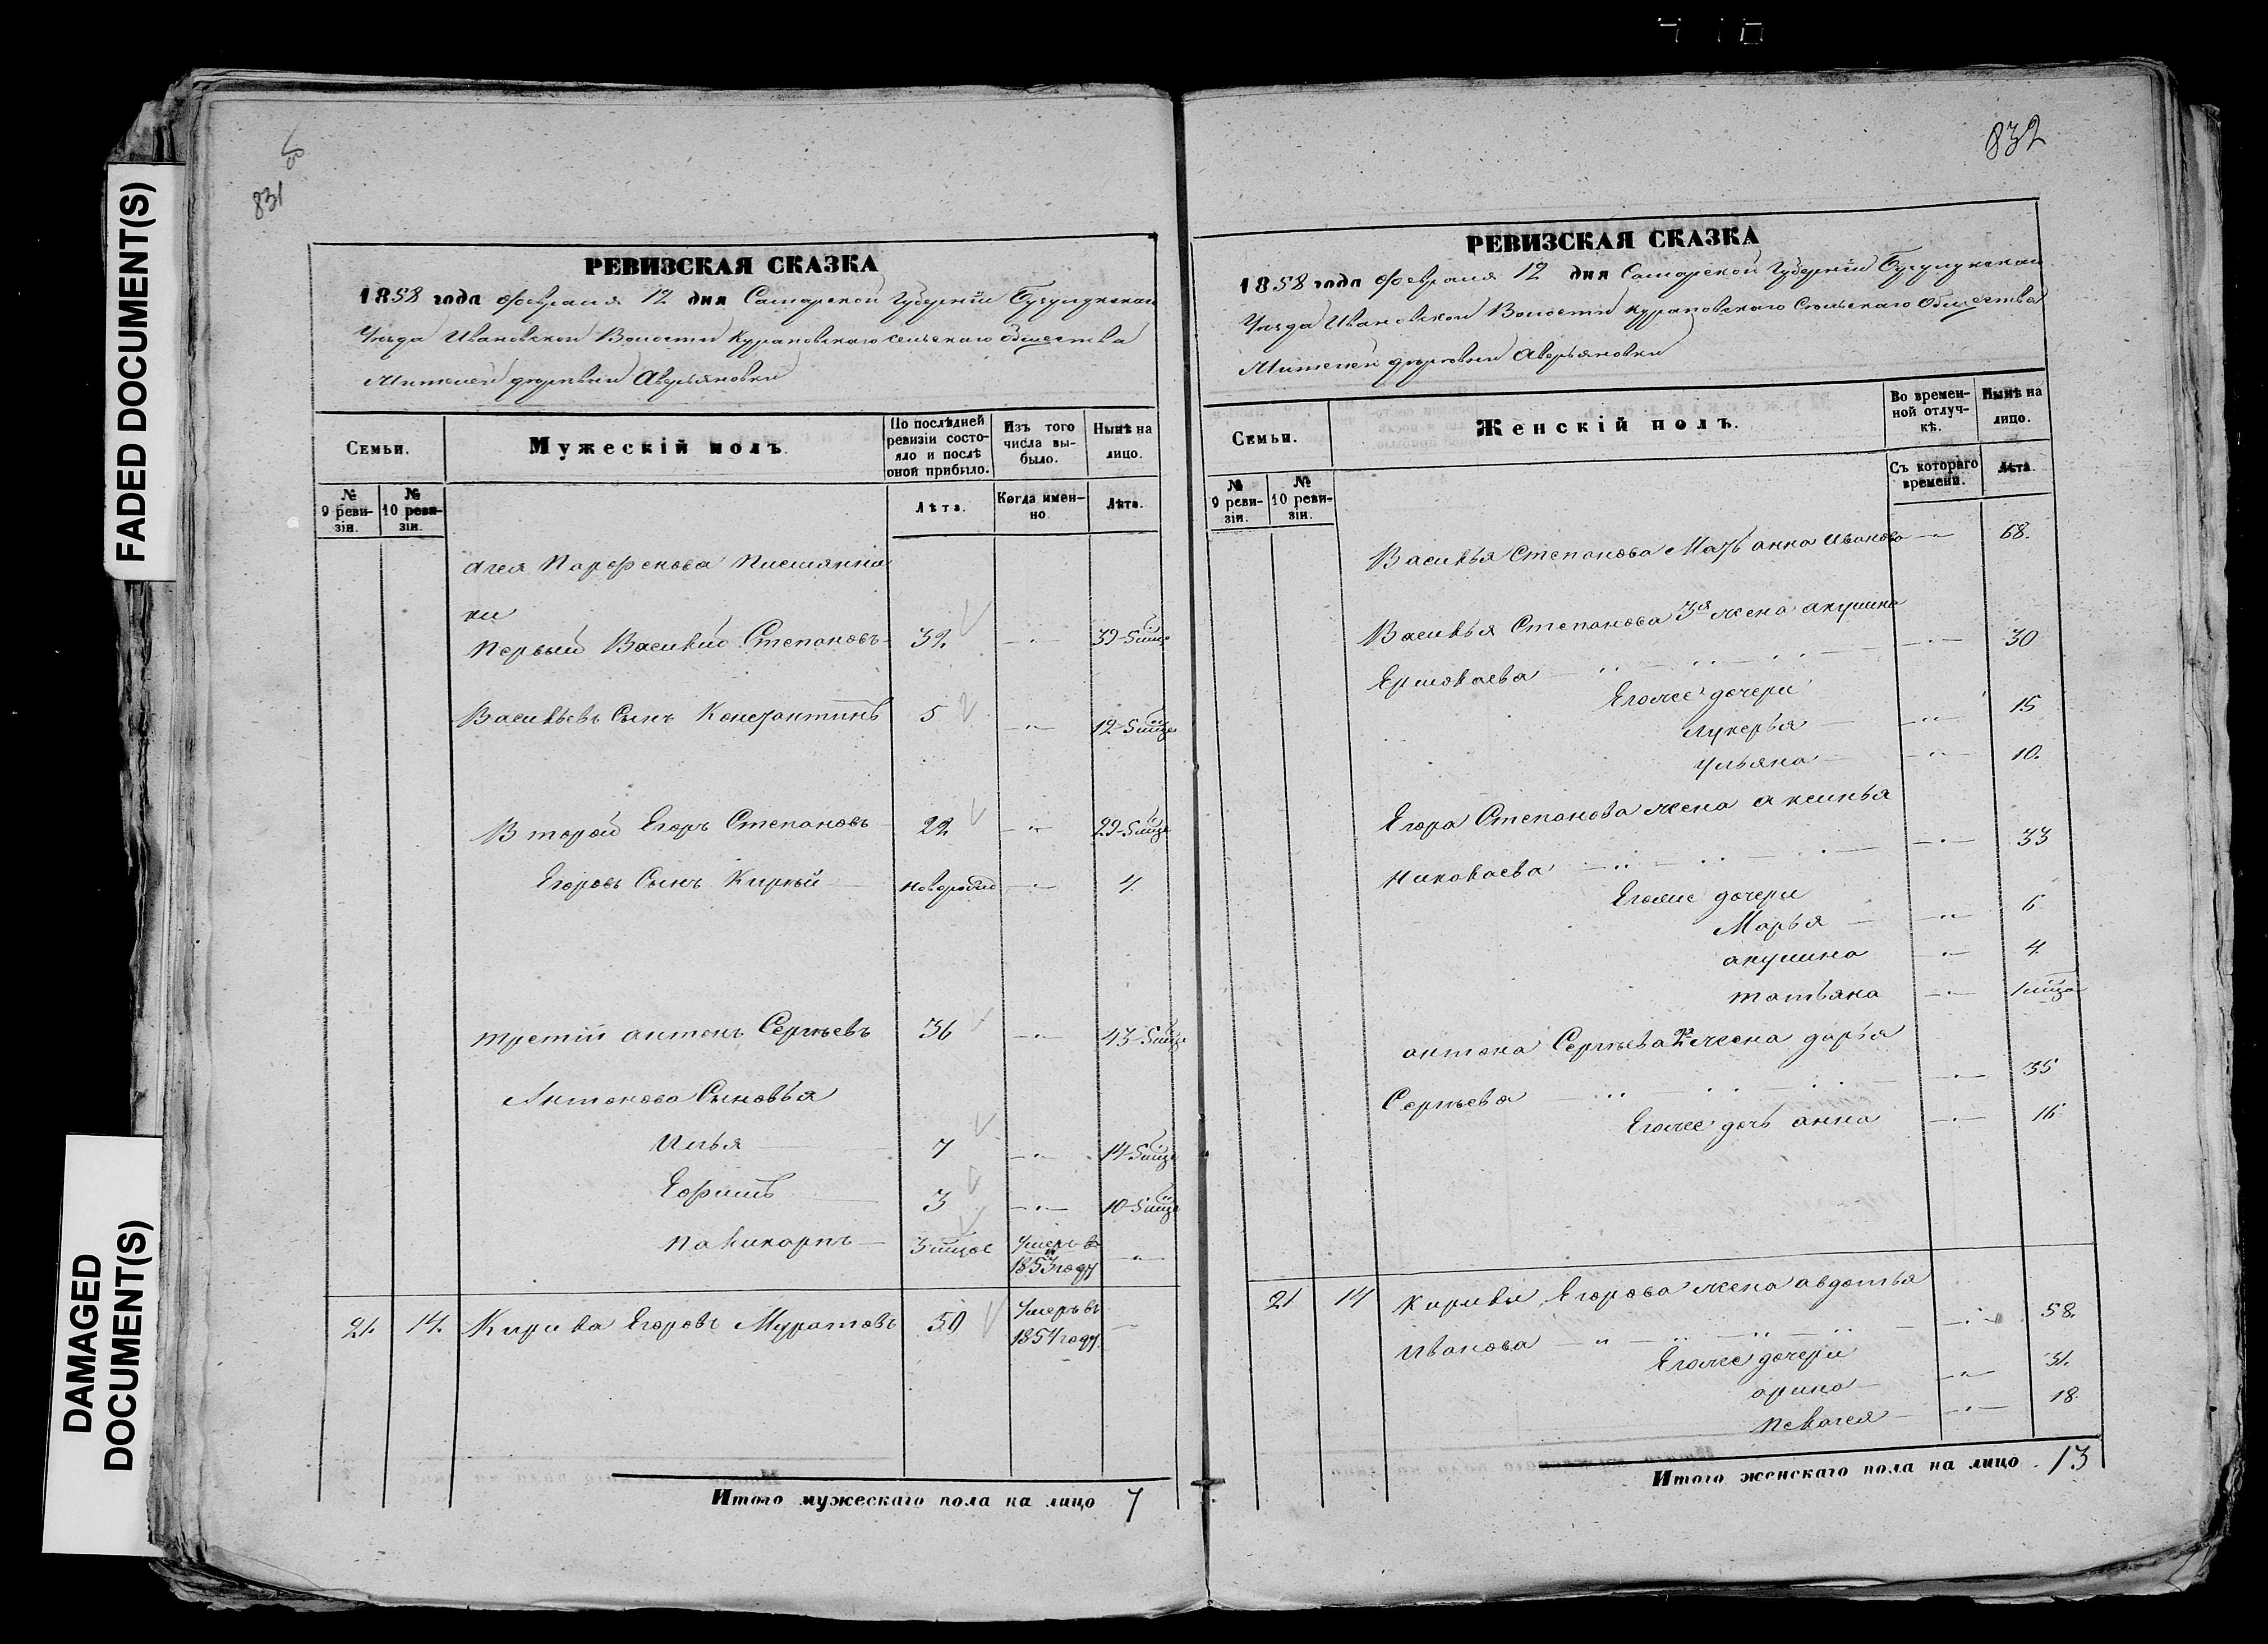 FADED DOCUMENT(S)
DAMAGED
DOCUMENT(S)
831
РЕВИЗСКАЯ СКАЗКА
1858 года февраля 12 дня Самарской Губерніи Бугурусланск
Уѣзда Ивановской Волости Сельскаго Общества
деревни Аверьяновки
Семьи.
Мужескій полъ.
По послѣдней ревизіи состояло и послѣ оной прибыло.
Изъ того числа выбыло.
Нынѣ на лицо.
№ 9 ревизіи.
№ 10 ревизіи.
Лѣта.
Когда именно.
Лѣта.
Парфенова
ки
Первый Василій Степановъ 32 39
Васильевъ Сынъ Константинъ 5 12
Второй Егоръ Степановъ 22 29
Егоровъ Сынъ Кирѣй 4
третій антонъ Сергѣевъ 36 43
Антоновы Сыновья
Илья 7 14
Ефимъ 3 10
Поликарпъ Умеръ въ 1853 году
21. 14. Кирила Егоровъ Муратовъ 50 Умеръ въ 1854 году
Итого мужескаго пола на лицо 7
832
РЕВИЗСКАЯ СКАЗКА
1858 года февраля 12 дня Самарской Губерніи
Уѣзда Ивановской Волости Сельскаго Общества
деревни Аверьяновки
Семьи.
Женскій полъ.
Во временной отлучкѣ.
Нынѣ на лицо.
№ 9 ревизіи.
№ 10 ревизіи.
Съ котораго времени.
Лѣта.
Василья Степанова Мать анна Иванова 68.
Василья Степанова 3я жена акулина
Ермолаева 30
Егоже дочери
Лукерья 15
Ульяна 10.
Егора Степанова жена аксинья
Николаева 33
Егоже дочери
Марья 6
акулина 4
татьяна
антона Сергѣева 2я жена дарья
Сергѣева 35
Егоже дочь анна 16
21 14 Кирилы Егорова жена авдотья
Иванова 58.
Егоже дочери
арина 31.
Пелагея 18.
Итого женскаго пола на лицо 13